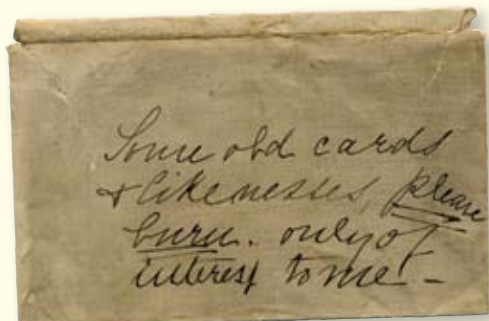 Some old cards
& likenesses, please
burn. only of
interest to me –